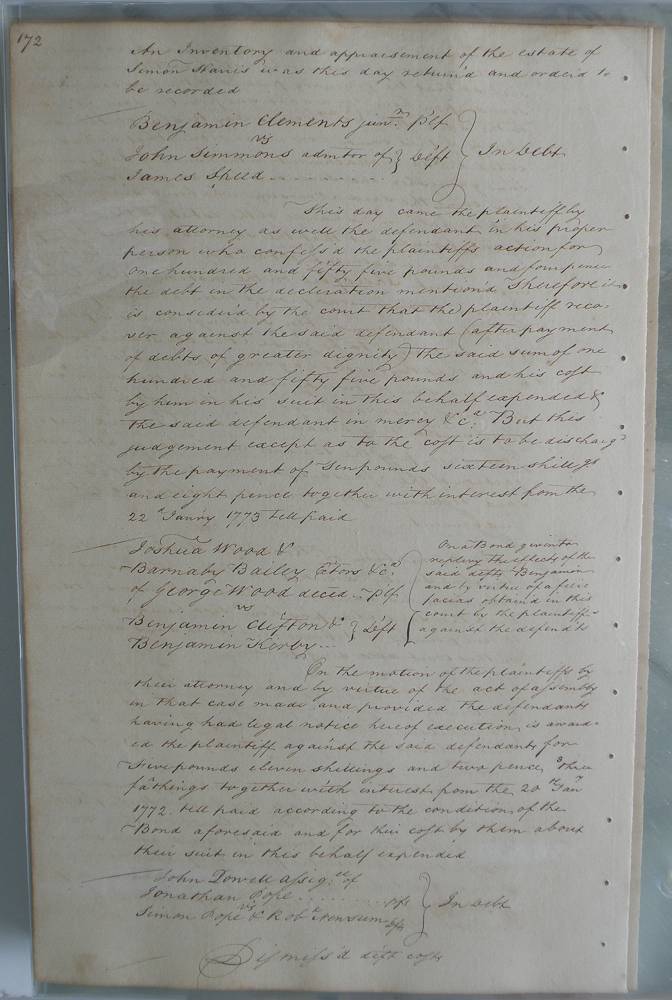 172
An Inventory and appraisement of the estate of
Simon Harris was this day return'd and order'd to
be recorded
Benjamin Clements junr. Plf
vs
John Simmons admtor of } Deft } In Debt
James Speed
This day came the plaintiff by
his attorney as well the defendant in his proper
person who confess'd the plaintiffs action for
one hundred and fifty five pounds and four pence
the debt in the declaration mention'd Therefore it
is consider'd by the court that the plaintiff reco-
ver against the said defendant (after payment
of debts of greater dignity) the said sum of one
hundred and fifty five pounds and his cost
by him in his suit in this behalf expended &
the said defendant in mercy &ca. But this
judgement except as to the cost is to be discharg'd
by the payment of Ten pounds sixteen shillgs
and eight pence together with interest from the
22d Janry 1773 till paid
Joshua Wood &
Barnaby Bailey Extors &ca
of George Wood deced. Plf
vs
Benjamin Clifton & } Deft
Benjamin Kerby
On a Bond given to
replevy the effects of the
said defts Benjamin
and by virtue of a fiere
facias obtain'd in this
court by the plaintiffs
against the defendts
On the motion of the plaintiffs by
their attorney and by virtue of the act of assembly
in that case made and provided the defendants
having had legal notice hereof execution is award-
ed the plaintiff against the said defendants for
Five pounds eleven shillings and two pence 3 three
fathings together with interest from the 20th Jany
1772 till paid according to the condition of the
Bond aforesaid and for their cost by them about
their suit in this behalf expended
John Powell assigee of
Jonathan Pope Plf } In Debt
vs
Simon Pope & Robt Newsum Dfts
Dismiss'd defts costs